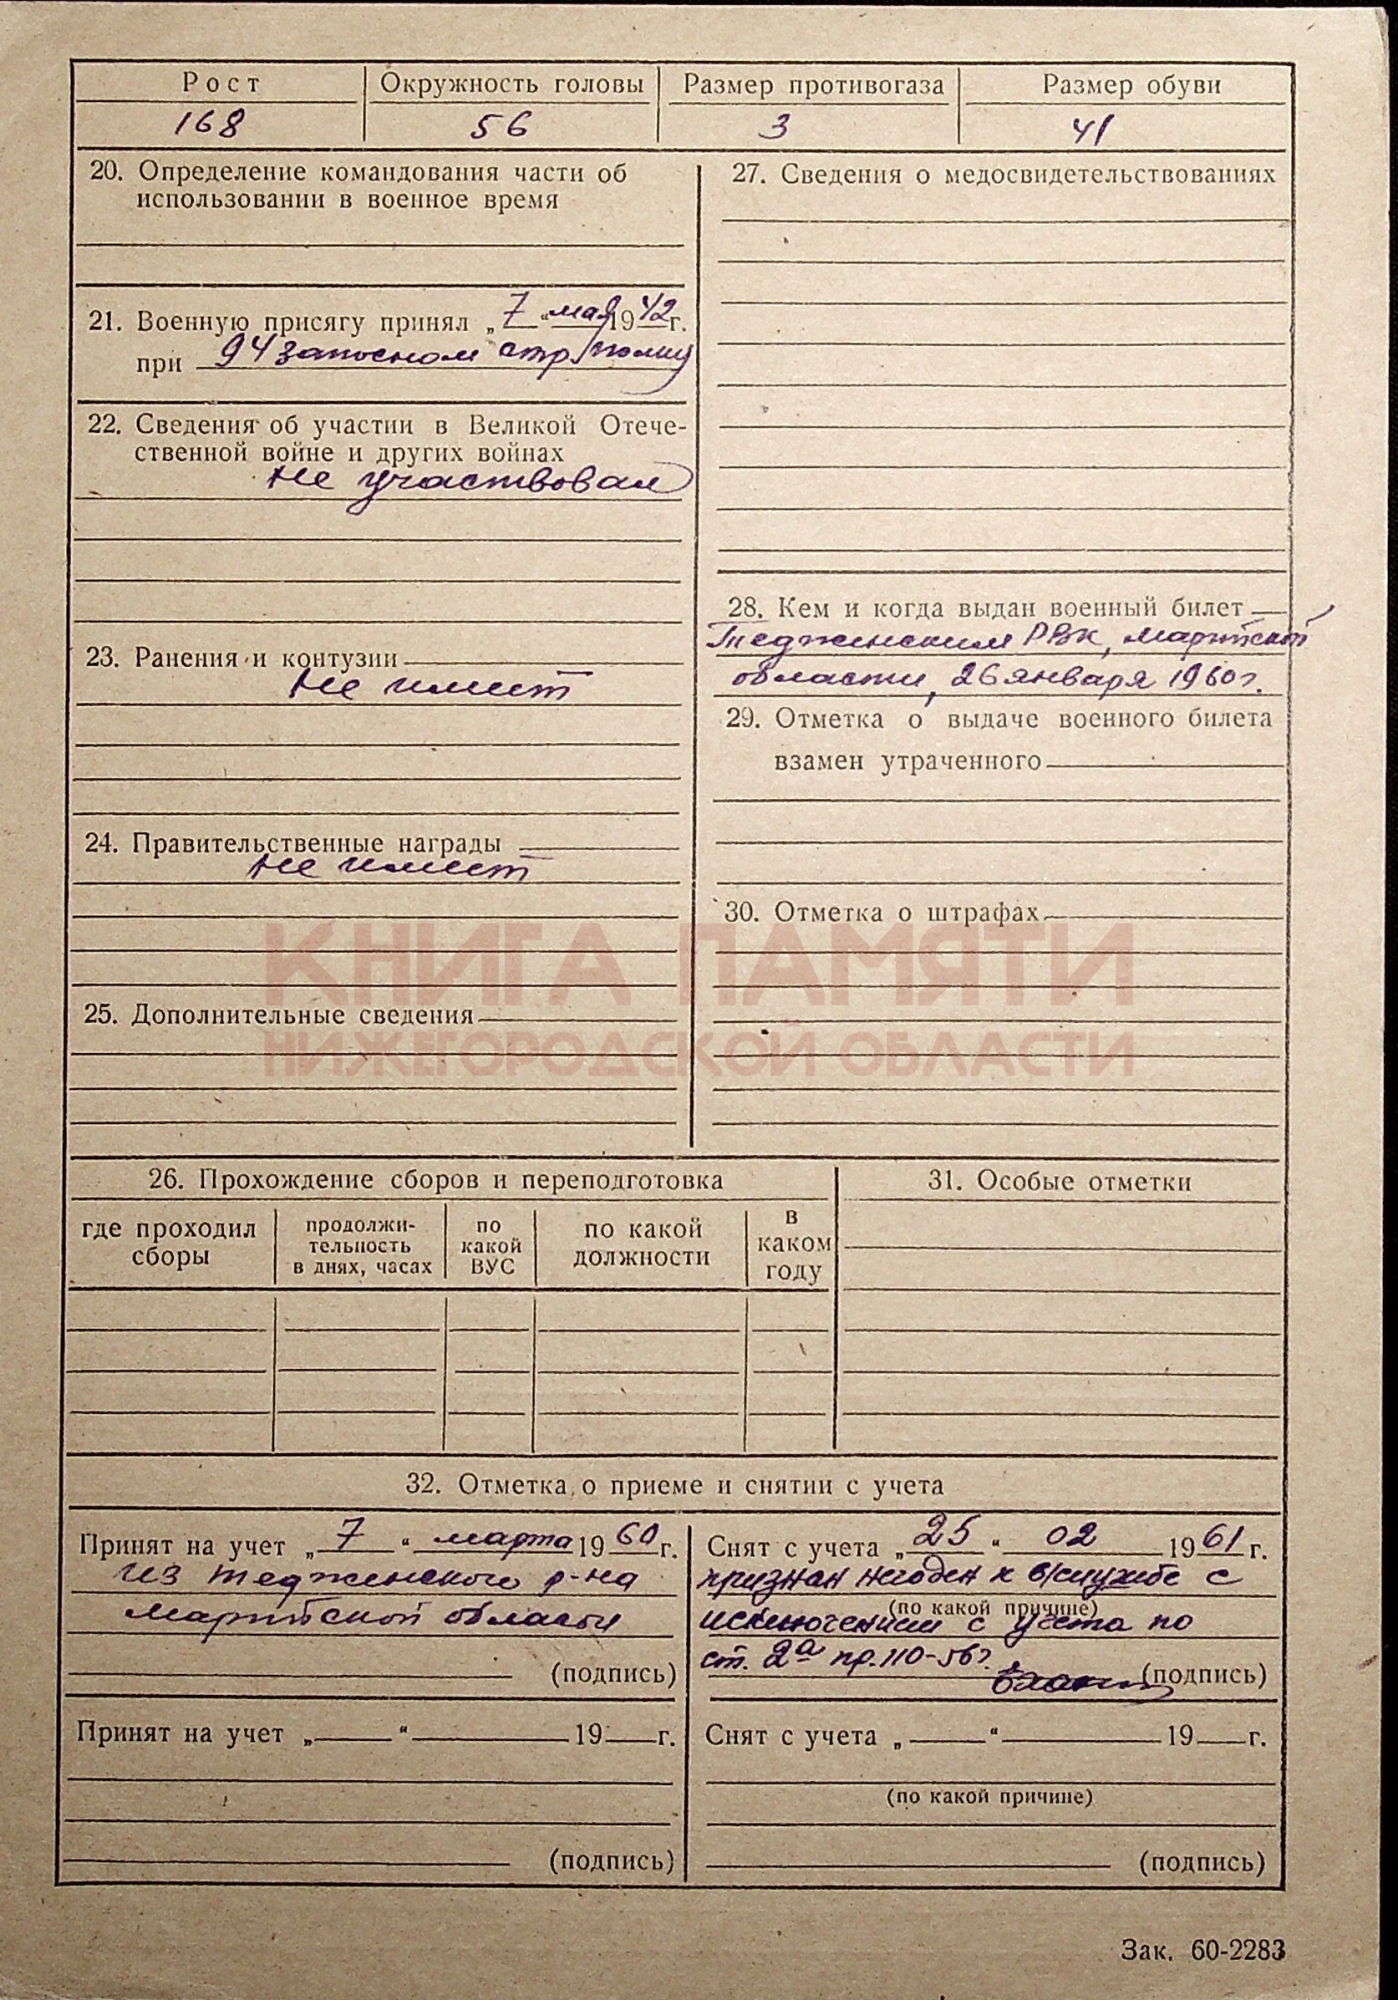 Рост Окружность головы Размер противогаза Размер обуви
168 56 3 41
20. Определение командования части об
использовании в военное время
21. Военную присягу принял „7“ мая 1942 г.
при 94 запасном стр/полку
22. Сведения об участии в Великой Отече-
ственной войне и других войнах
Не участвовал
23. Ранения и контузии
Не имеет
24. Правительственные награды
Не имеет
25. Дополнительные сведения
27. Сведения о медосвидетельствованиях
28. Кем и когда выдан военный билет
Тедженским РВК, Марыйской
области, 26 января 1960 г.
29. Отметка о выдаче военного билета
взамен утраченного
30. Отметка о штрафах
КНИГА ПАМЯТИ
НИЖЕГОРОДСКОЙ ОБЛАСТИ
26. Прохождение сборов и переподготовка
где проходил
сборы
продолжи-
тельность
в днях, часах
по
какой
ВУС
по какой
должности
в
каком
году
31. Особые отметки
32. Отметка о приеме и снятии с учета
Принят на учет „7“ марта 1960 г.
из Тедженского р-на
Марыйской области
(подпись)
Снят с учета „25“ 02 1961 г.
признан негоден к в/службе с
(по какой причине)
исключением с учета по
ст. 2а пр. 110-56 г.
(подпись)
Принят на учет „ “ 19 г.
(подпись)
Снят с учета „ “ 19 г.
(по какой причине)
(подпись)
Зак. 60-2283